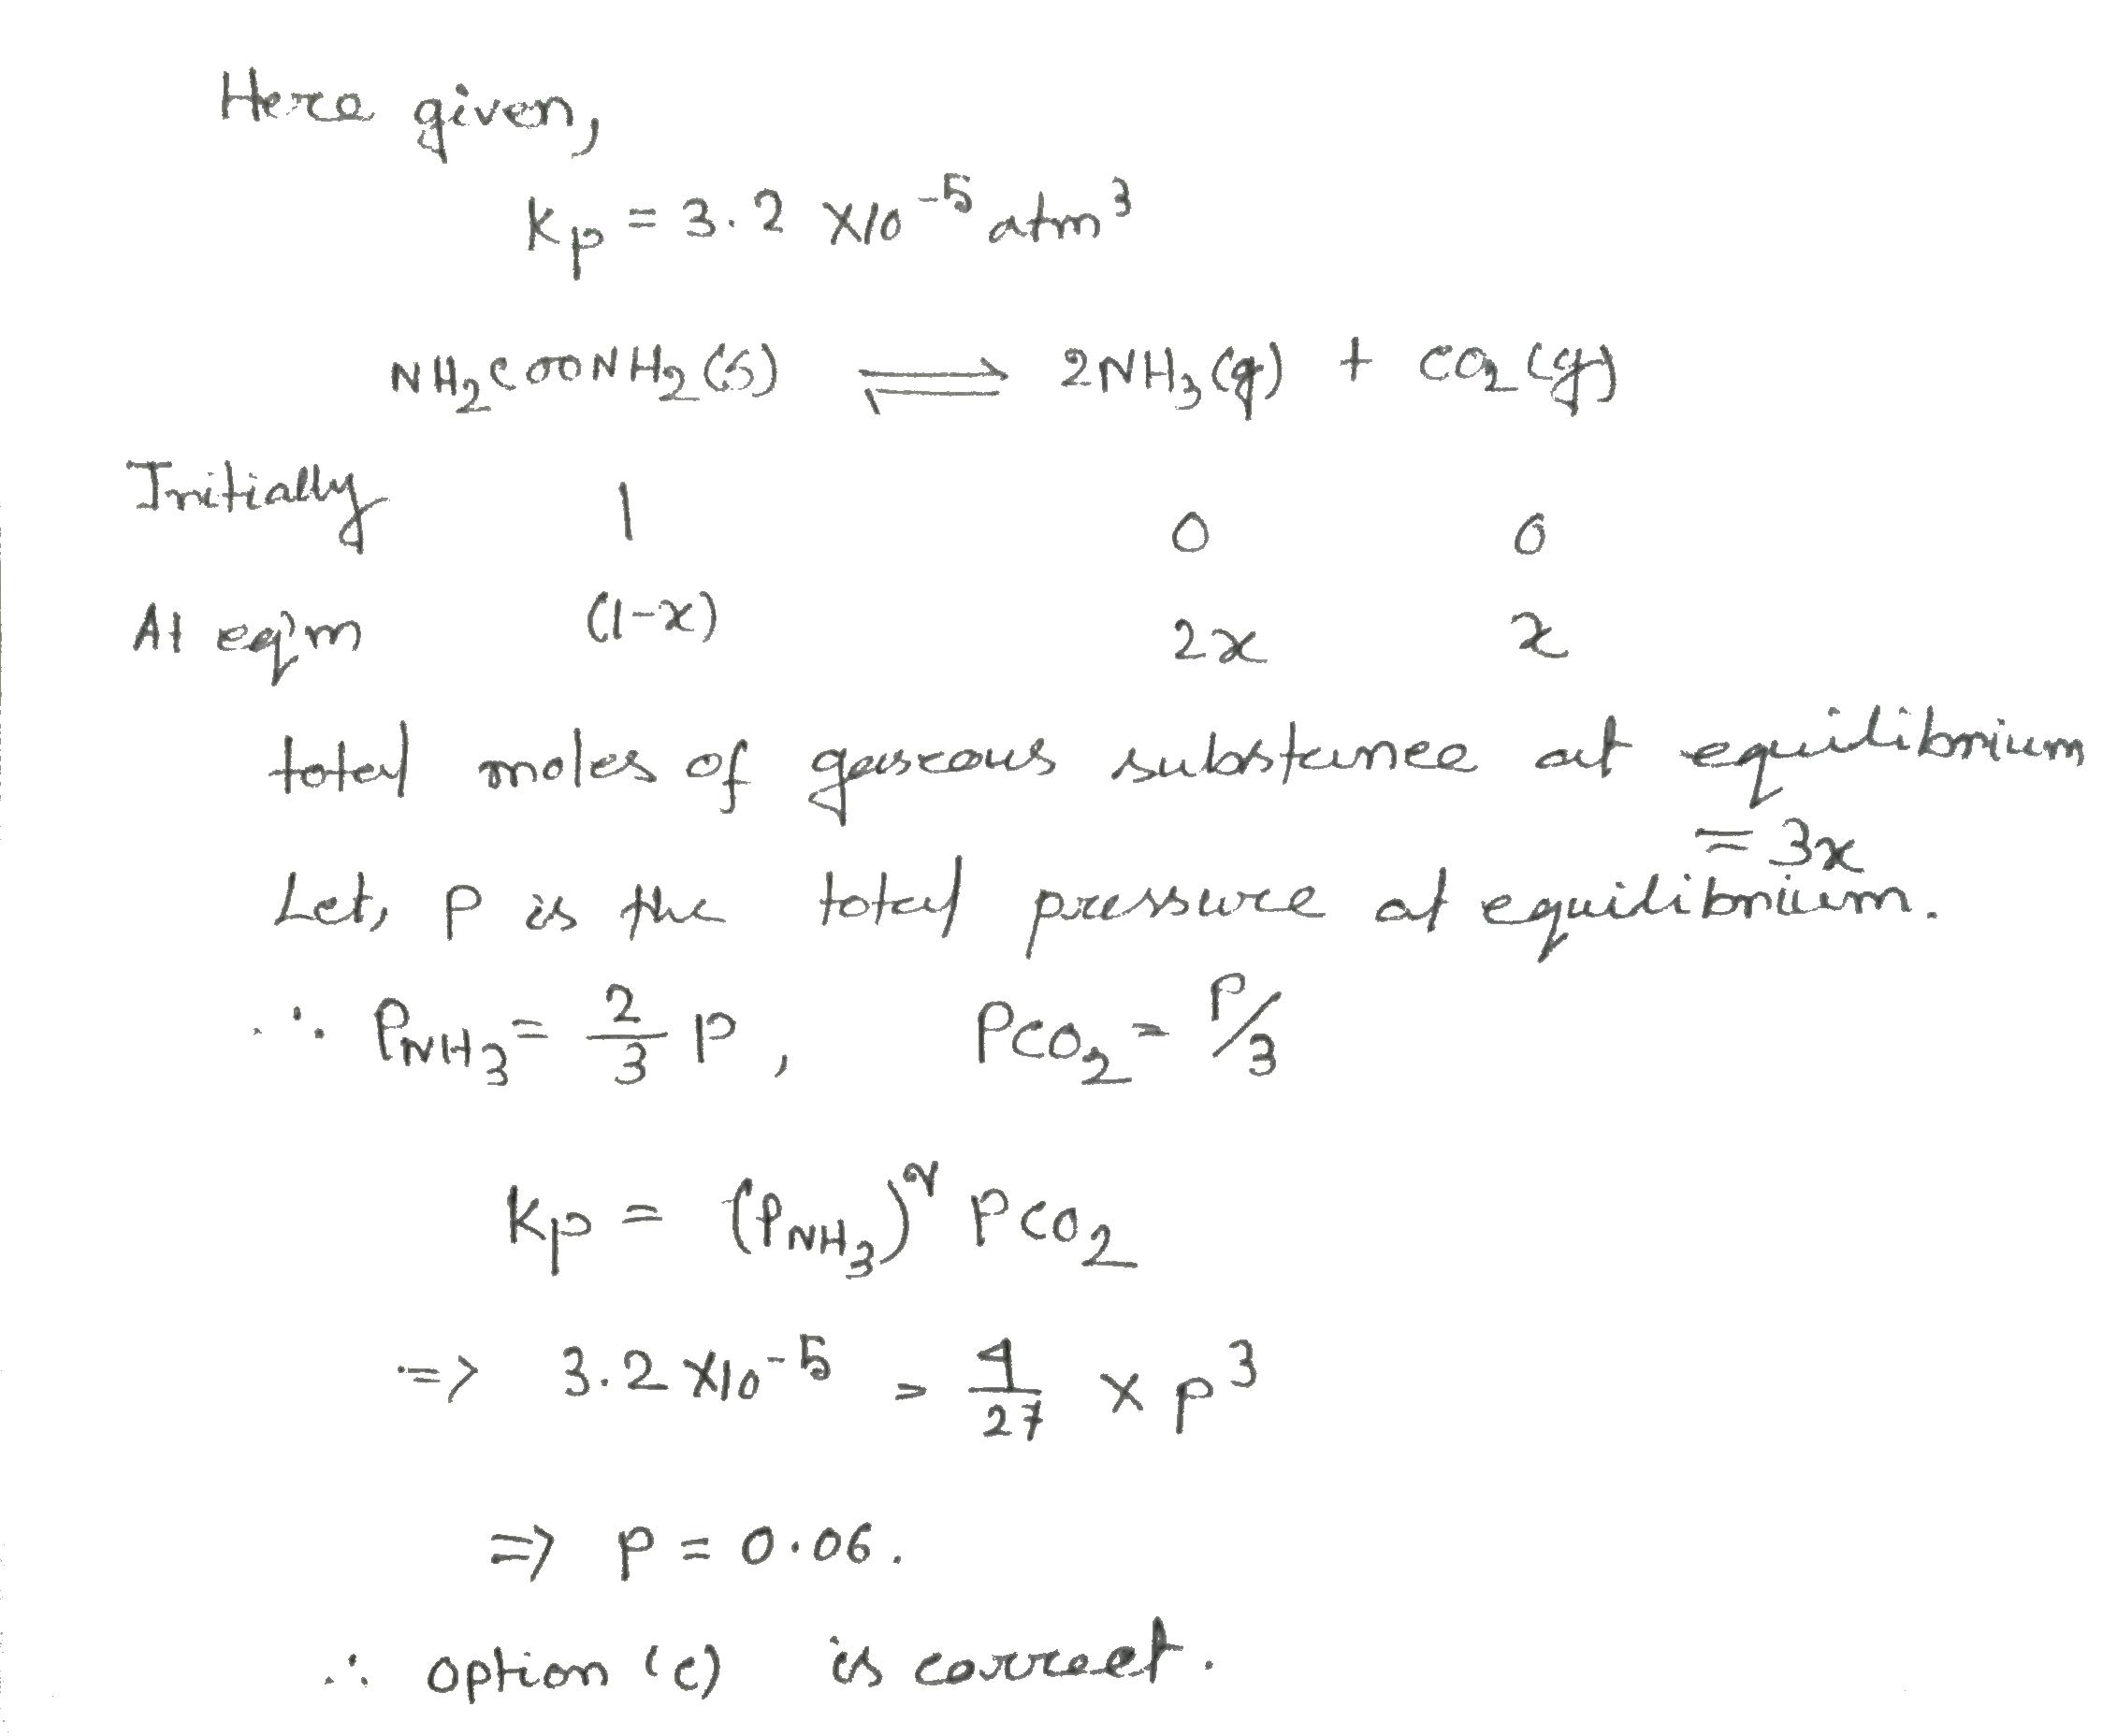 Here given,
Kp = 3.2 X10⁻⁵ atm³
NH₂COONH₂(s) ⇌ 2NH₃(g) + CO₂(g)
Initially 1 0 0
At eq'm (1-x) 2x x
total moles of gaseous substance at equilibrium
= 3x
Let, P is the total pressure at equilibrium.
∴ PNH₃ = 2/3 P, PCO₂ = P/3
Kp = (PNH₃)² PCO₂
=> 3.2 X10⁻⁵ = 4/27 x P³
=> P = 0.06.
∴ option (c) is correct.